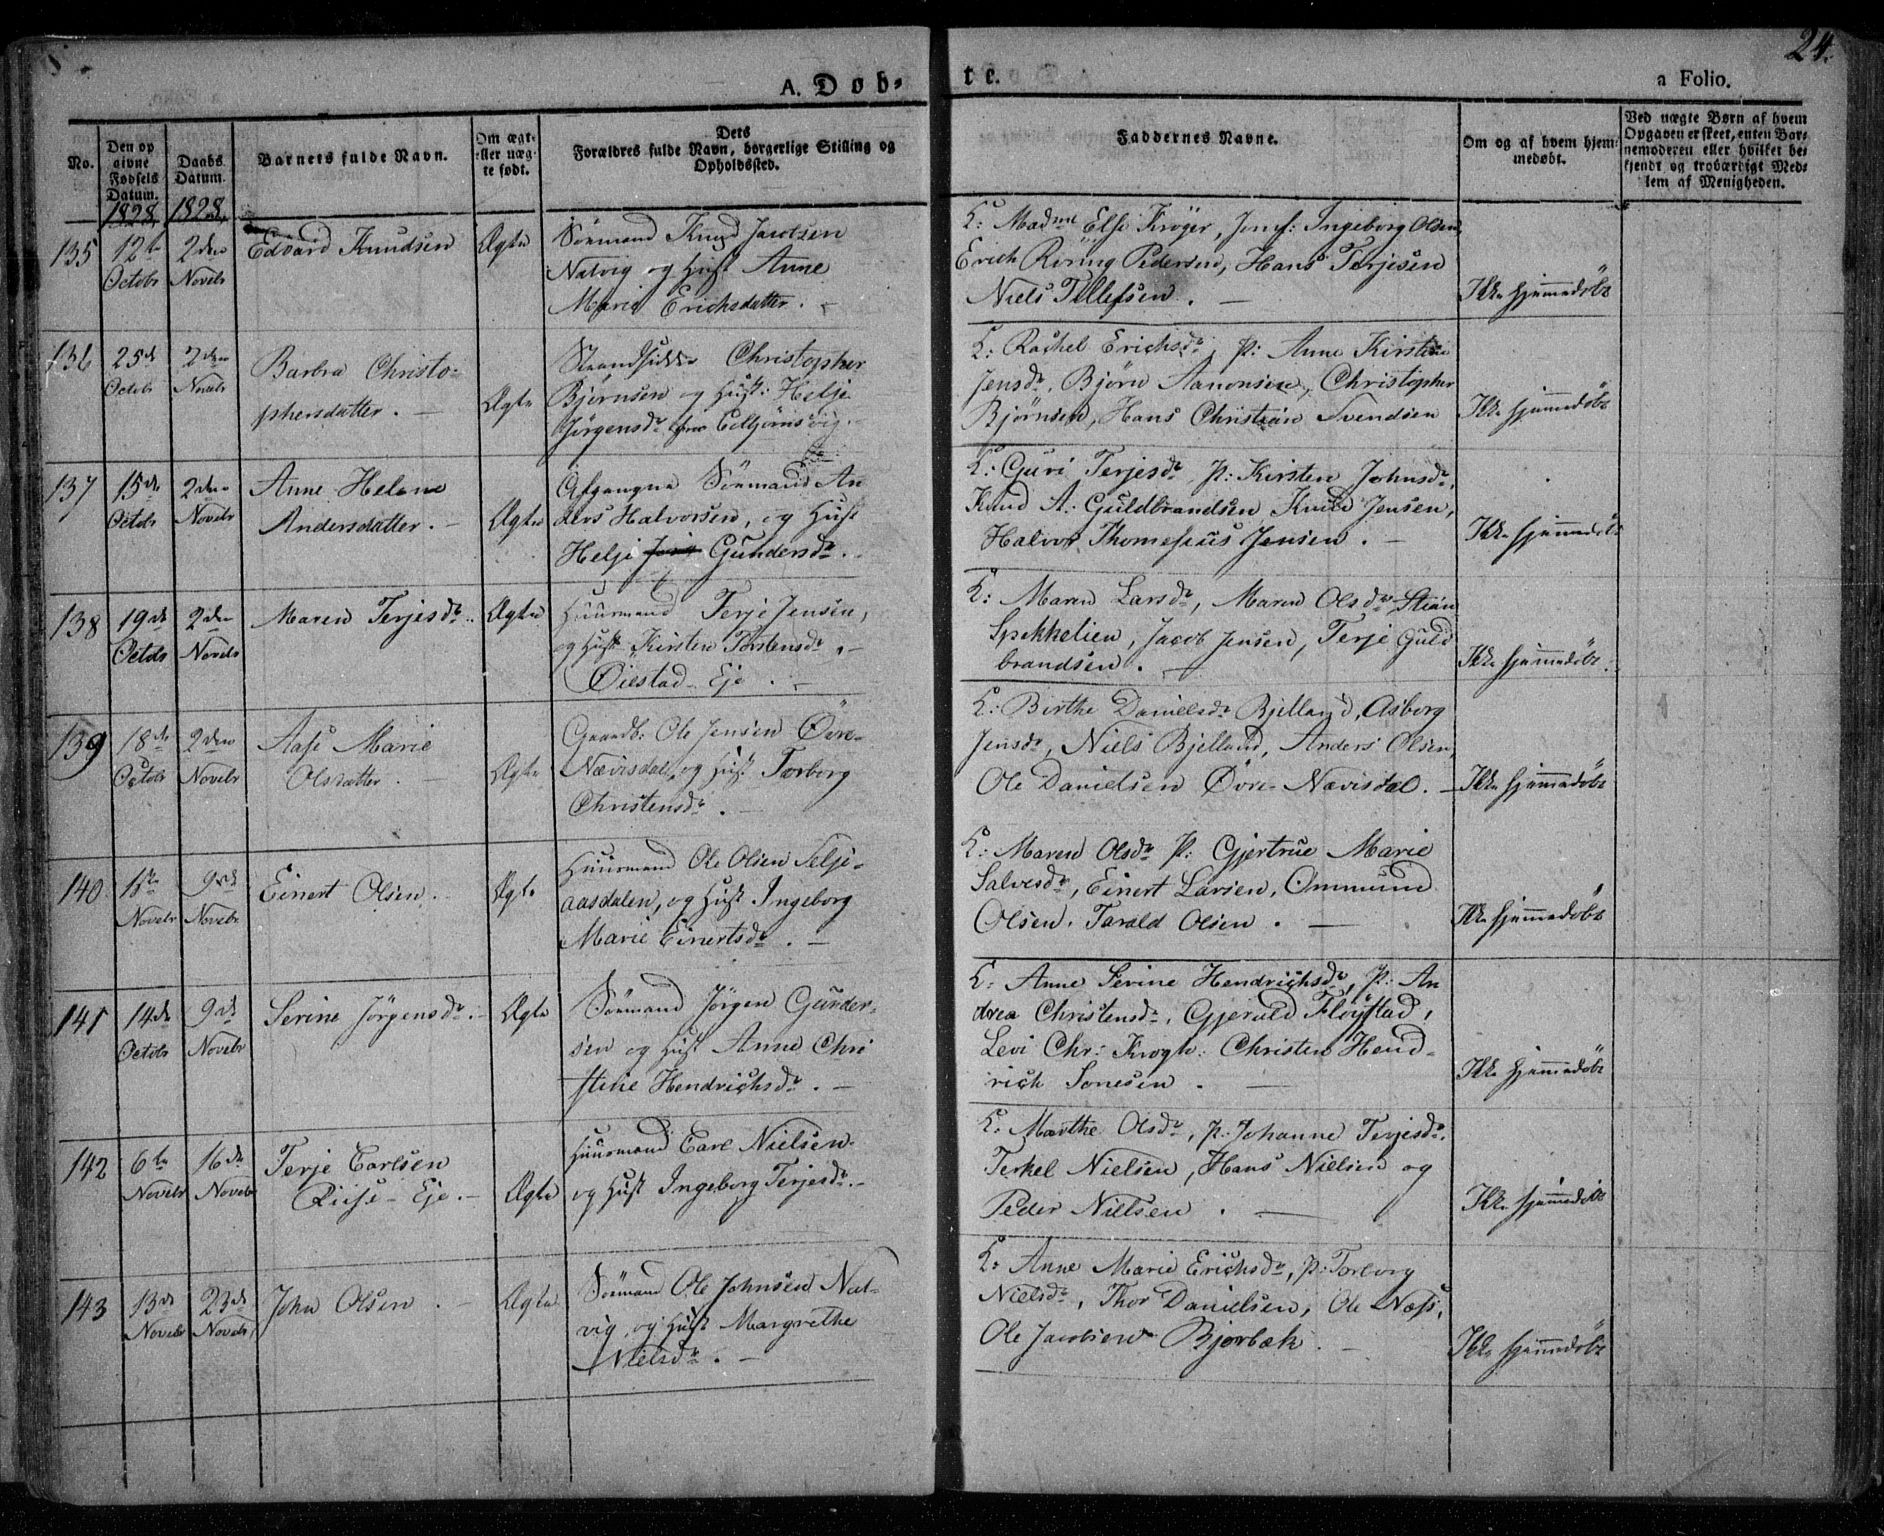 24.
A. Døb-
te.
a Folio.
No.
Den op
givne
Fødsels
Datum.
1828
Daabs
Datum.
1828
Barnets fulde Navn.
Om ægt-
eller uæg-
te født.
Dets
Forældres fulde Navn, borgerlige Stilling og
Opholdssted.
Faddernes Navne.
Om og af hvem hjem-
medøbt.
Ved uægte Børn af hvem
Opgaven er skeet, enten Bar-
nemoderen eller hvilket be-
kjendt og troværdigt Med-
lem af Menigheden.
135
12te
Octobr
2den
Novebr
Edvard Knudsen
Ægte
Sömand Knud Jacobsen
Natvig og Hust Anne
Marie Erichsdatter.
F: Madme Else Krøger, Jomf: Ingeborg Olsen,
Erich Röring Pedersen, Hans Terjesen
Niels Tellefsen.
Ikke hjemmedöbt
136
25de
Octobr
2den
Novebr
Barbra Christo-
phersdatter.
Ægte
Strandsidder Christopher
Bjørnsen og Hust: Helje
Jørgensdr fra Eeltjörnsvig.
F: Rachel Erichsdr, P: Anne Kirstine
Jensdr, Bjørn Aanonsen, Christopher
Bjørnsen, Hans Christian Svendsen
Ikke hjemmedöbt
137
15de
Octobr
2den
Novebr
Anne Helene
Andersdatter.
Ægte
Afgangne Sömand An
ders Halvorsen, og Hust
Helje Gundersdr.
F: Guri Terjesdr, P: Kirsten Johnsdr,
Knud A: Guldbrandsen Knud Jensen,
Halvor Thomesius Jensen.
Ikke hjemmedöbt
138
19de
Octobr
2den
Novebr
Maren Terjesdr.
Ægte
Huurmand Terje Jensen,
og Hust Kirsten Torstensdr.
Öiestad-Eje.
F: Maren Larsdr, Maren Olsdr, Stian
Spekkelien, Jacob Jensen, Terje Guld
brandsen.
Ikke hjemmedöbt.
139
18de
Octobr
2den
Novebr
Aase Marie
Olsdatter.
Ægte
Gaardb: Ole Jensen Övre-
Nævisdal, og Hust Torborg
Christensdr.
F: Birthe Danielsdr Bjelland, Asborg
Jensdr, Niels Bjelland, Anders Olsen,
Ole Danielsen Øvre-Nævisdal.
Ikke hjemmedöbt
140
1ste
Novebr
9de
Novebr
Einert Olsen.
Ægte
Huurmand Ole Olsen Selje-
aasdalen, og Hust Ingeborg
Marie Einertsdr.
F: Maren Olsdr P: Gjertrue Marie
Salvesdr, Einert Larsen, Ommund
Olsen, Tarald Olsen.
Ikke hjemmedöbt
141
14de
Octobr
9de
Novebr
Serine Jørgensdr.
Ægte
Sömand Jörgen Gunder-
sen og Hust Anne Chri
stine Hendrichsdr.
F: Anne Serine Hendrichsdr, P: An
drea Christensdr, Gjeruld Fløystad,
Levi Chr: Krogh: Christen Hend-
rich Sonesen.
Ikke hjemmedöbt
142
6te
Novebr
16de
Novebr
Terje Carlsen
Riise-Eje.
Ægte
Huurmand Carl Nielsen
og Hust Ingeborg Terjesdr.
F: Marthe Olsdr, P: Johanne Terjesdr,
Terkel Nielsen, Hans Nielsen og
Peder Nielsen.
Ikke hjemmedöbt
143
13de
Novebr
23de
Novebr
John Olsen.
Ægte
Sömand Ole Johnsen Nat-
vig, og Hust Margrethe
Nielsdr.
F: Anne Marie Erichsdr, P: Torborg
Nielsdr, Thor Danielsen, Ole Næss,
Ole Jacobsen Bjorbæk.
Ikke hjemmedöbt